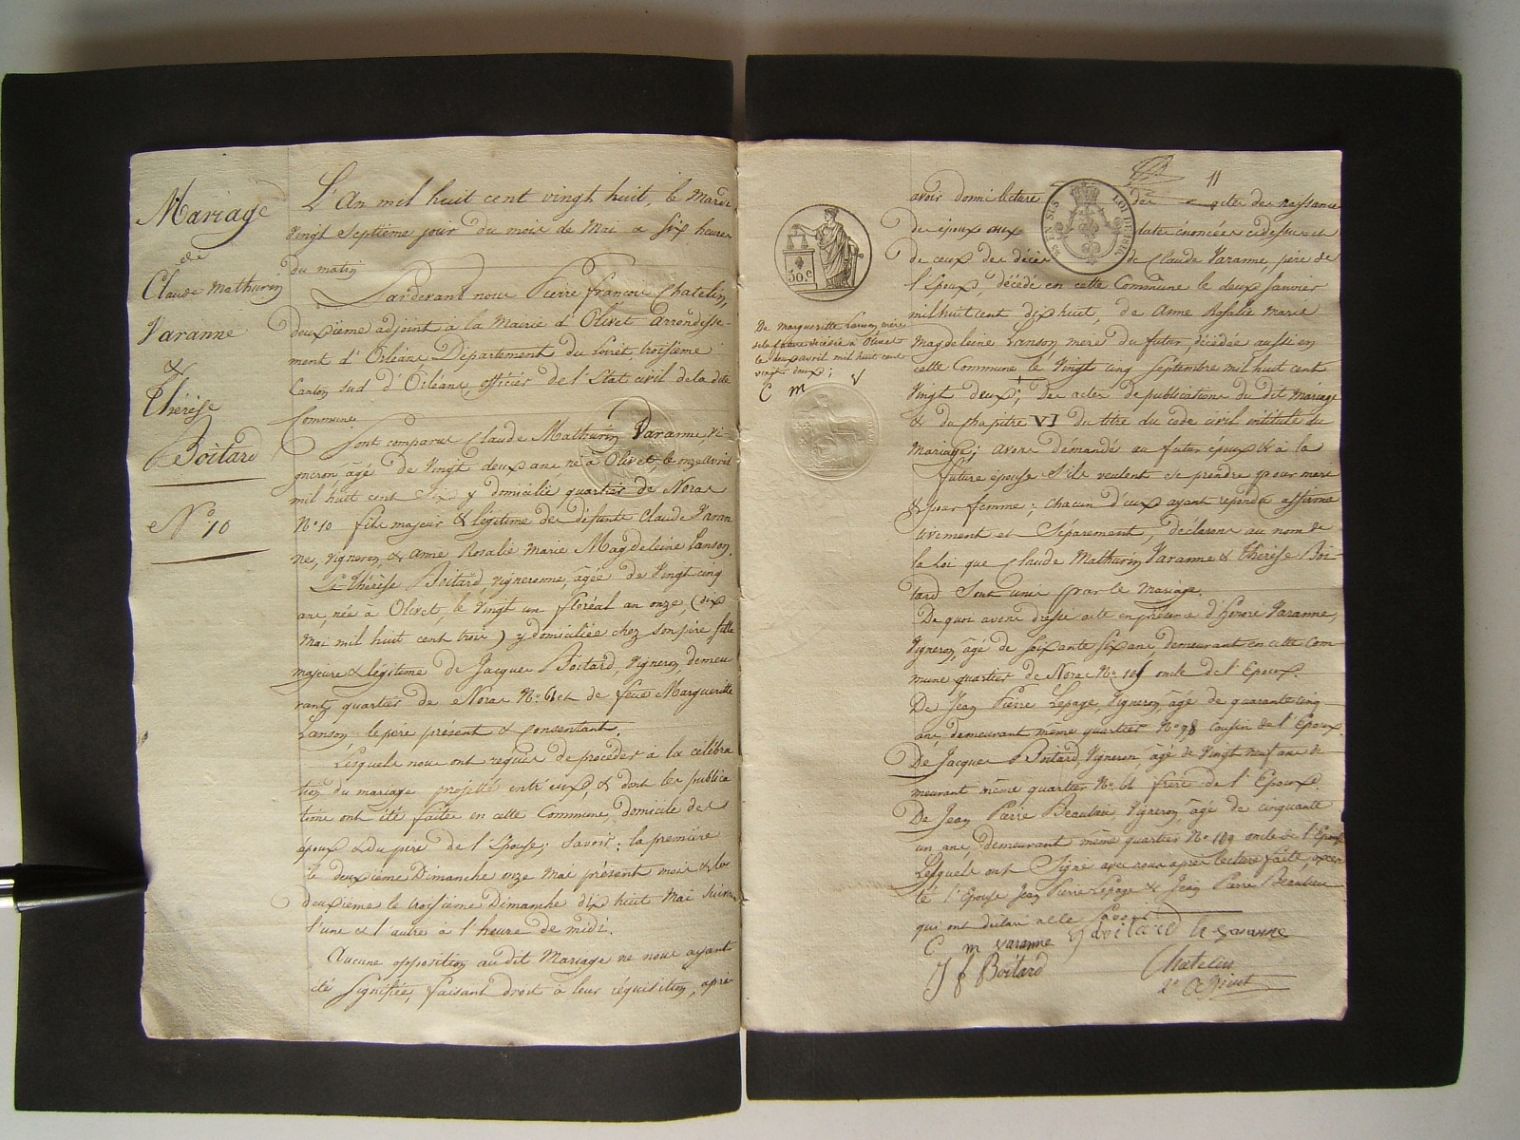 Mariage
de
Claude Mathurin
Varanne
&
Thérèse
Boitard
N° 10
L'An mil huit cent vingt huit, le Mardi
Vingt Septieme jour du mois de Mai a Six heures
du matin
Pardevant nous Pierre François Chatelin,
deuxième adjoint à la Mairie d'Olivet arrondisse-
ment d'Orléans Département du Loiret, troisième
Canton sud d'Orléans, officier de l'Etat civil de la dite
Commune.
Sont comparus Claude Mathurin Varanne, Vi-
gneron, âgé de Vingt deux ans né à Olivet, le onze avril
mil huit cent Six, y domicilié quartier de Noras
N° 10 fils majeur & légitime des défunts Claude Varan
ne, vigneron, & anne Rosalie Marie Magdeleine Lanson.
Et Thérèse Boitard, vigneronne, âgée de Vingt cinq
ans, née à Olivet, le Vingt un floréal an onze, (dix
Mai mil huit cent trois) y domiciliée chez son père fille
majeure & légitime de Jacques Boitard, Vigneron, demeu
rant, quartier de Noras N° 61 et de feue Margueritte
Lanson, le père présent & consentant.
Lesquels nous ont requis de procéder à la célébra
tion du mariage projetté entr'eux, & dont les publica
tions ont été faites en cette Commune, domicile des
époux & du père de l'Epouse; Savoir; la première
le deuxième Dimanche onze Mai présent mois & la
deuxième le troisième Dimanche dix huit Mai suivant
l'une et l'autre à l'heure de midi.
Aucune opposition audit Mariage ne nous ayant
été signifiée, faisant droit à leur réquisition, après
11
avoir donné lecture des actes de naissance
des époux aux dates énoncées cidessus et
de ceux de décès de Claude Varanne, père de
l'Epoux, décédé en cette Commune le deux Janvier
mil huit cent dix huit, de Anne Rosalie Marie
Magdeleine Lanson mère du futur, décédée aussi en
cette Commune le Vingt cinq Septembre mil huit cent
Vingt deux; + Des actes de publications du dit Mariage
& du chapitre VI du titre du code civil intitulé du
Mariage; avons démandé au futur époux & à la
future épouse S'ils veulent se prendre pour mari
& pour femme; chacun d'eux ayant répondu affirma
tivement et Séparement, déclarons au nom de
la Loi que Claude Mathurin Varanne & Thérèse Boi-
tard Sont unis par le Mariage.
De quoi avons dressé acte en présence d'Honoré Varanne,
Vigneron, âgé de soixante six ans, demeurant en cette Com
mune quartier de Noras N° 101 oncle de l'Epoux.
De Jean Pierre Lepage, Vigneron, âgé de quarante cinq
ans, demeurant même quartier N° 98 cousin de l'Epoux.
De Jacques Boitard, Vigneron, âgé de Vingt neuf ans de
meurant même quartier N° 61 frère de l'Epouse.
De Jean Pierre Beaulieu, Vigneron, âgé de cinquante
un ans, demeurant même quartier N° 100 oncle de l'Epouse
Lesquels ont Signé avec nous après lecture faite, excep
té l'Epouse Jean Pierre Lepage & Jean Pierre Beaulieu
qui ont déclaré ne le Savoir
C m varanne J boitard h varanne
J J Boitard
Chatelin
2e Adjoint
30.c
De margueritte Lanson mère
de la future décédée à Olivet
le deux avril mil huit cent
vingt deux;
C m V